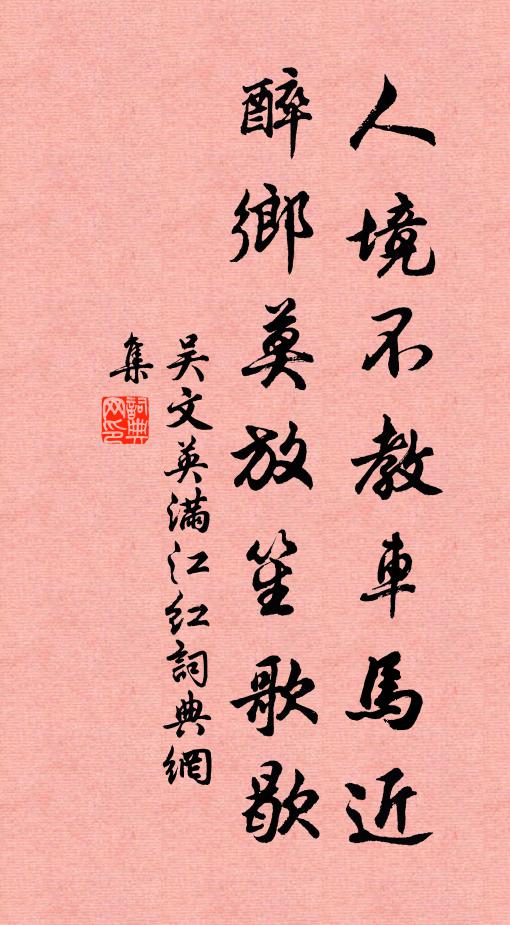 人境不教車馬近
醉鄉莫放笙歌歇
吴文英满江红詞典網
集
詞典
网印